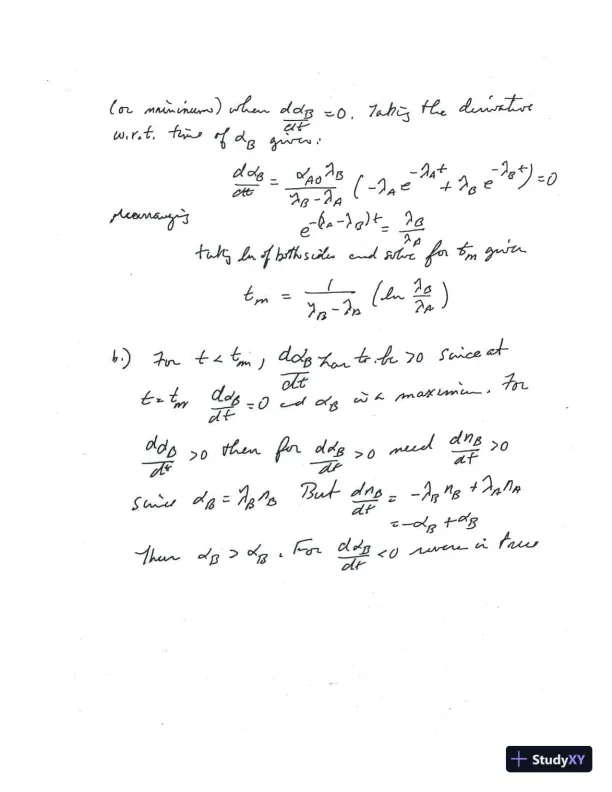 (or minimum) when dα_B/dt = 0. Taking the derivative
w.r.t. time of α_B gives:
dα_B/dt = α_A0 λ_B/(λ_B - λ_A) (-λ_A e^{-λ_A t} + λ_B e^{-λ_B t}) = 0
Rearranging e^{-(λ_A - λ_B)t} = λ_B/λ_A
taking ln of both sides and solve for t_m gives
t_m = 1/(λ_B - λ_A) (ln λ_B/λ_A)
b.) For t < t_m, dα_B/dt has to be > 0 since at
t = t_m dα_B/dt = 0 and α_B is a maximum. For
dα_B/dt > 0 then for dα_B/dt > 0 need dn_B/dt > 0
since α_B = λ_B n_B But dn_B/dt = -λ_B n_B + λ_A n_A
= -α_B + α_B
Then α_B > α_B. For dα_B/dt < 0 reverse is true
StudyXY